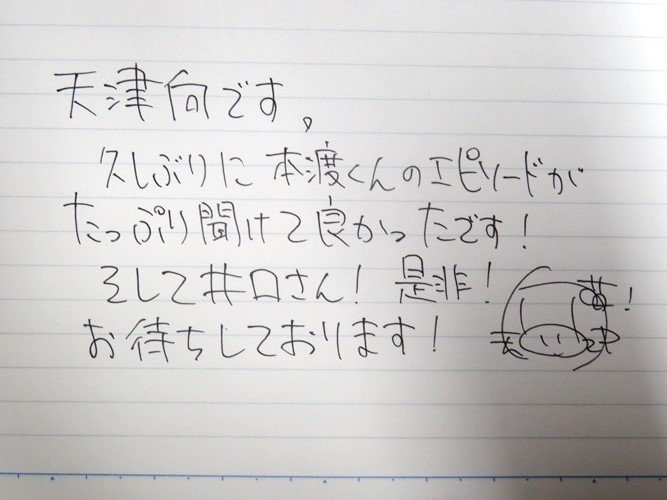 天津向です。
久しぶりに本渡くんのエピソードが
たっぷり聞けて良かったです！
そして井口さん！是非！
お待ちしております！